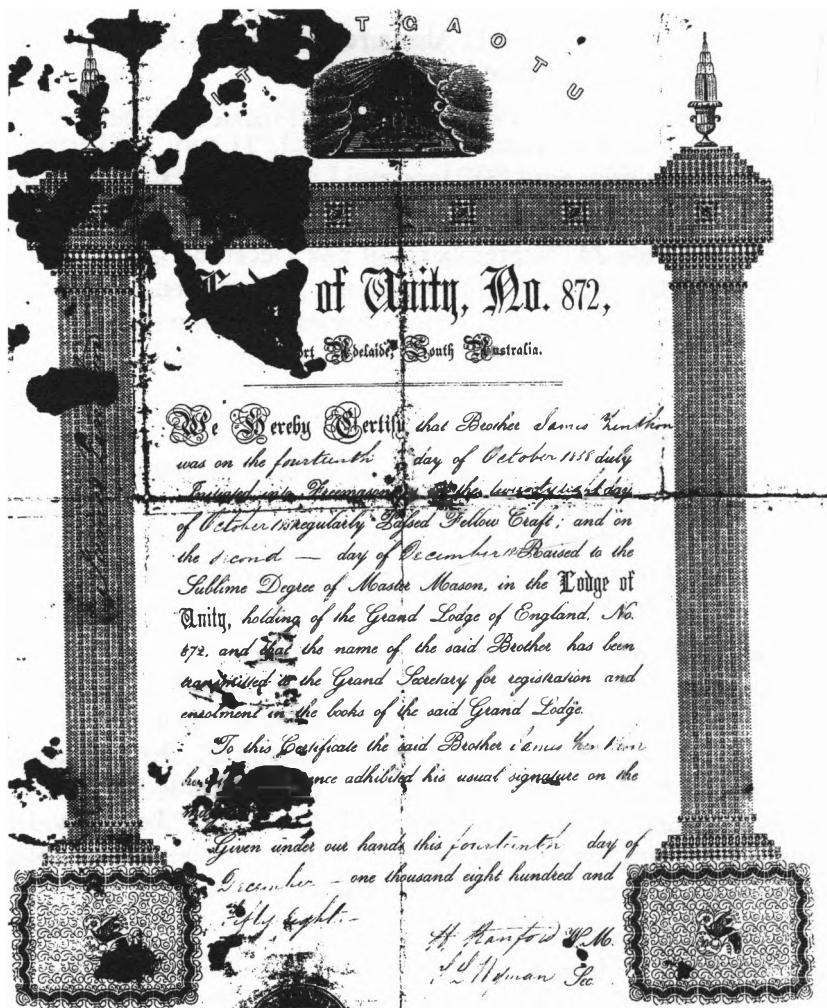 I T T G A O T U
of Unity, No. 872,
Adelaide, South Australia.
We Hereby Certify that Brother James
was on the fourteenth day of October 1858 duly
Initiated into the twenty eight day
of October regularly Passed Fellow Craft; and on
the second — day of December Raised to the
Sublime Degree of Master Mason, in the Lodge of
Unity, holding of the Grand Lodge of England, No.
872, and that the name of the said Brother has been
transmitted to the Grand Secretary for registration and
enrolment in the books of the said Grand Lodge.
To this Certificate the said Brother James
adhibited his usual signature on the
Given under our hands this fourteenth day of
December — one thousand eight hundred and
Fifty Eight. —
H Hanford W.M.
Wyman Sec.